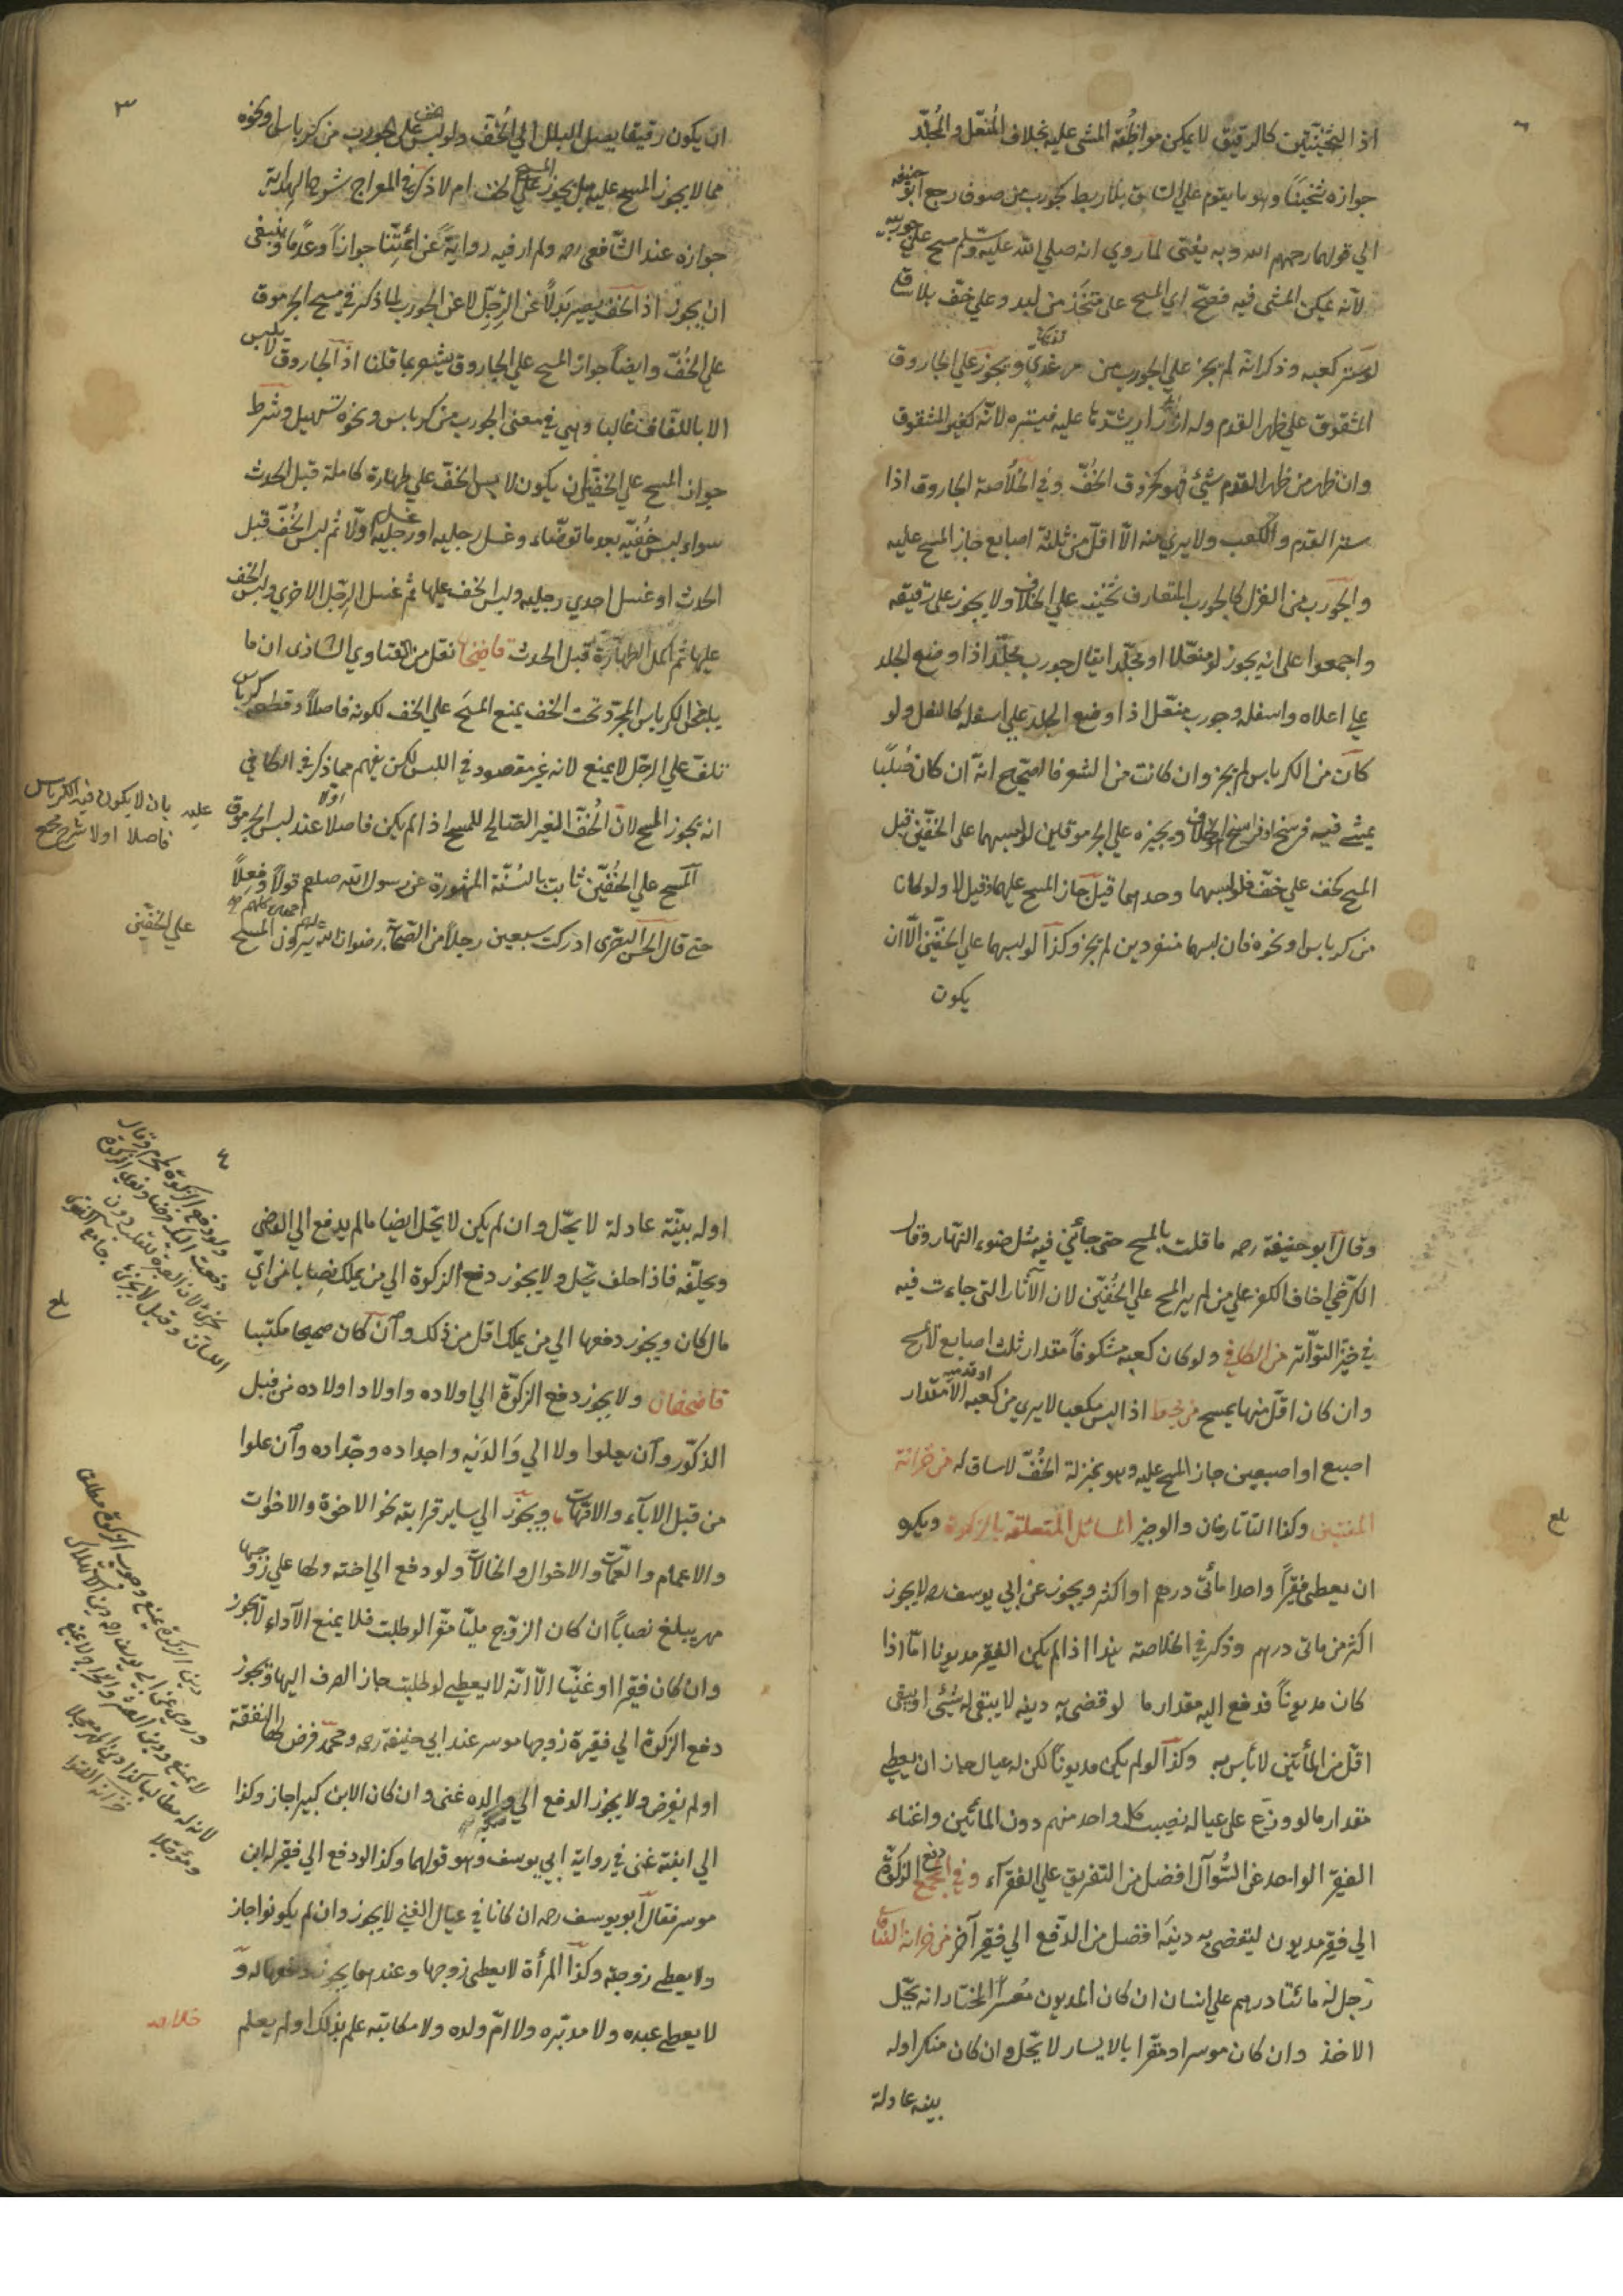 اذا الثخينين كالرقيق لا يمكن مواظبة المشي عليه بخلاف المنعّل والمجلّد
جوازه ثخينًا وهو ما يقوم علي الساق بلا ربط كجورب من صوف رجع ابو حنيفه
الي قولهما رحمهم الله وبه يفتي لما روي انه صلي الله عليه وسلم مسح علي جوربيه
لانه يمكن المشي فيه فصحّ اي المسح علي متخذ من لبد وعلي خفّ بلا ساق
لو ستر كعبه وذكر انه لم يجز علي الجورب من مرعزي ويجوز علي الجاروق
المشقوق علي ظهر القدم وله ازرار يشدّها عليه فيستره لانه كغير المشقوق
وان ظهر من ظهر القدم شيئ فهو كخروق الخفّ وفي الخلاصة الجاروق اذا
ستر القدم والكعب ولا يري منه الّا اقلّ من ثلثة اصابع جاز المسح عليه
والجورب من الغزل كالجورب المتعارف ثخينه علي الخلاف ولا يجوز علي رقيقه
واجمعوا علي انه يجوز لو منعّلا او مجلّدا يقال جورب مجلّد اذا وضع الجلد
علي اعلاه واسفله وجورب منعّل اذا وضع الجلد علي اسفله كالنعل ولو
كان من الكرباس لم يجز وان كانت من الشعر فالصحيح انه ان كان صُلبًا
يمشي فيه فرسخا او فراسخ الخلاف ويجيزه علي الجرموقين لو لبسهما علي الخفّين قبل
المسح كخف علي خفّ فلو لبسهما وحدهما قيل جاز المسح عليهما وقيل لا ولو كان
من كرباس او نحوه فان لبسهما منفردين لم يجز وكذا لو لبسهما علي الخفّين الّا ان
يكون
٣
ان يكون رقيقا يصل البلل الي الخُفّ ولو لبس خف علي جورب من كرباس او نحوه
مما لا يجوز المسح عليه هل يجوز المسح علي الخف ام لا ذكر في المعراج شرح الهداية
جوازه عند الشافعي رحمه ولم ار فيه رواية عن ائمّتنا جوازًا وعدمًا وينبغي
ان يجوز اذ الخفّ يصير بدلًا عن الرجل لا عن الجورب لما ذكر في مسح الجرموق
علي الخُفّ وايضًا جواز المسح علي الجاروق يشعر بما قلنا اذ الجاروق لا يلبس
الا باللفّاف غالبا وهي في معني الجورب من كرباس ونحوه تسهيل وشرط
جواز المسح علي الخفّين ان يكون لابس الخفّ علي طهارة كاملة قبل الحدث
سواء لبس خُفّيه بعد ما توضّاء وغسل رجليه او غسل رجليه اوّلًا ثم لبس الخُفّ قبل
الحدث او غسل احدي رجليه ولبس الخف عليها ثم غسل الرجل الاخري ولبس الخف
عليها ثم اكمل الطهارة قبل الحدث قاضيخان نقل من الفتاوي الشاذي ان ما
يلبس الكرباس المجرّد تحت الخف يمنع المسح علي الخف لكونه فاصلًا وقطعة كرباس
تلفّ علي الرجل لا يمنع لانه غير مقصود في اللبس لكن يفهم مما ذكر في الكافي
انه يجوز المسح لان الخُفّ الغير الصالح للمسح اذا لم يكن فاصلا عند لبس الجرموق
عليه بان لا يكون فيه الكرباس
فاصلا اولا شرح مجمع
المسح علي الخُفّين ثابت بالسُنّة المشهورة عن رسول الله صلعم قولًا وفعلًا
حتي قال الحسن البصري ادركت سبعين رجلًا من الصحابة رضوان الله عليهم اجمعين كلهم يرون المسح
علي الخفّين
وقال ابو حنيفة رحمه ما قلت بالمسح حتي جائني فيه مثل ضوء النهار وقال
الكرخي اخاف الكفر علي من لم ير المسح علي الخُفّين لان الآثار التي جاءت فيه
في حيّز التواتر من الكافي ولو كان كعبه مكشوفًا مقدار ثلث اصابع لا يمسح
وان كان اقلّ منها يمسح من محيط اذا لبس مكعبا لا يري من كعبه او قدميه الا مقدار
اصبع او اصبعين جاز المسح عليه وهو بمنزلة الخُفّ لا ساق له من خزانة
المفتين وكذا التاتارخان والوجيز المسائل المتعلقة بالزكوة ويكره
ان يعطي فقيرًا واحدا مأتي درهم او اكثر ويجوز عن ابي يوسف رحمه لا يجوز
اكثر من مأتي درهم وذكر في الخلاصة هذا اذا لم يكن الفقير مديونا امّا اذا
كان مديونًا فدفع اليه مقدار ما لو قضي به دينه لا يبقي له شيئ او يبقي
اقلّ من المأتين لا بأس به وكذا لو لم يكن مديونًا لكن له عيال جاز ان يعطي
مقدار ما لو وزّع علي عياله نصيب كل واحد منهم دون المأتين واغناء
الفقير الواحد عن السُّوال افضل من التفريق علي الفقرآء وفي المجمع دفع الزكوة
الي فقير مديون ليقضي به دينه افضل من الدفع الي فقير آخر من خزانة الفتاوي
رجل له مائتا درهم علي انسان ان كان المديون معسرا المختار انه يحلّ
الاخذ وان كان موسرا ومقرّا بالايسار لا يحلّ وان كان منكرا وله
بينه عادلة
بلغ
٤
او له بيّنة عادلة لا يحلّ وان لم يكن لا يحلّ ايضا ما لم يدفع الي القاضي
ويحلّفه فاذا حلف يحلّ ولا يجوز دفع الزكوة الي من يملك نصابا من ايّ
مال كان ويجوز دفعها الي من يملك اقل من ذلك وان كان صحيحا مكتسبا
قاضيخان ولا يجوز دفع الزكوة الي اولاده واولاد اولاده من قبل
الذكور وان يعلوا ولا الي والديه واجداده وجدّاده وان علوا
من قبل الابآء والامّهات ويجوز الي ساير قرابته نحو الاخوة والاخوات
والاعمام والعمّات والاخوال والخالات ولو دفع الي اخته ولها علي زوجها
مهر يبلغ نصابًا ان كان الزوج مليّا مقرّا لو طلبت فلا يمنع الآداء لا يجوز
وان كان فقيرا او غنيّا الّا انّه لا يعطي لو طلبت جاز الصرف اليها ويجوز
دفع الزكوة الي فقيرة زوجها موسر عند ابي حنيفة رحمه ومحمّد فرض لها النفقة
او لم يفرض ولا يجوز الدفع الي والده غني وان كان الابن كبيرا جاز وكذا
الي ابنة غني في رواية ابي يوسف وهو قولهما وكذا لو دفع الي فقير له ابن
موسر فقال ابو يوسف رحمه ان كانا في عيال الغني لا يجوز وان لم يكونوا جاز
ولا يعطي زوجته وكذا المرأة لا يعطي زوجها وعندهما يجوز دفعها له و
لا يعطي عبده ولا مدبّره ولا امّ ولده ولا مكاتبه علم بذلك او لم يعلم
خلاصه
بلغ